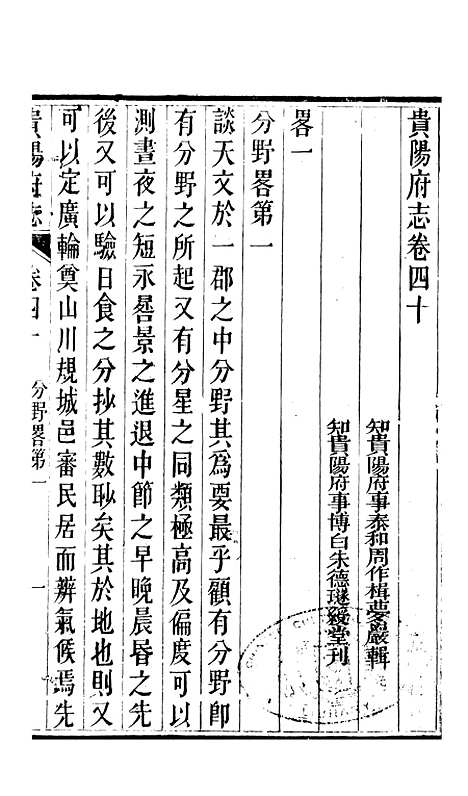 貴陽府志卷四十
知貴陽府事泰和周作楫夢巖輯
知貴陽府事博白朱德璲綬堂刊
畧一
分野畧第一
談天文於一郡之中分野其為要最乎顧有分野卽
有分野之所起又有分星之同類極高及偏度可以
測晝夜之短永晷景之進退中節之早晚晨昏之先
後又可以驗日食之分抄其數眇矣其於地也則又
可以定廣輪奠山川規城邑審民居而辨氣候焉先
貴陽府志 卷四十 分野畧第一 一